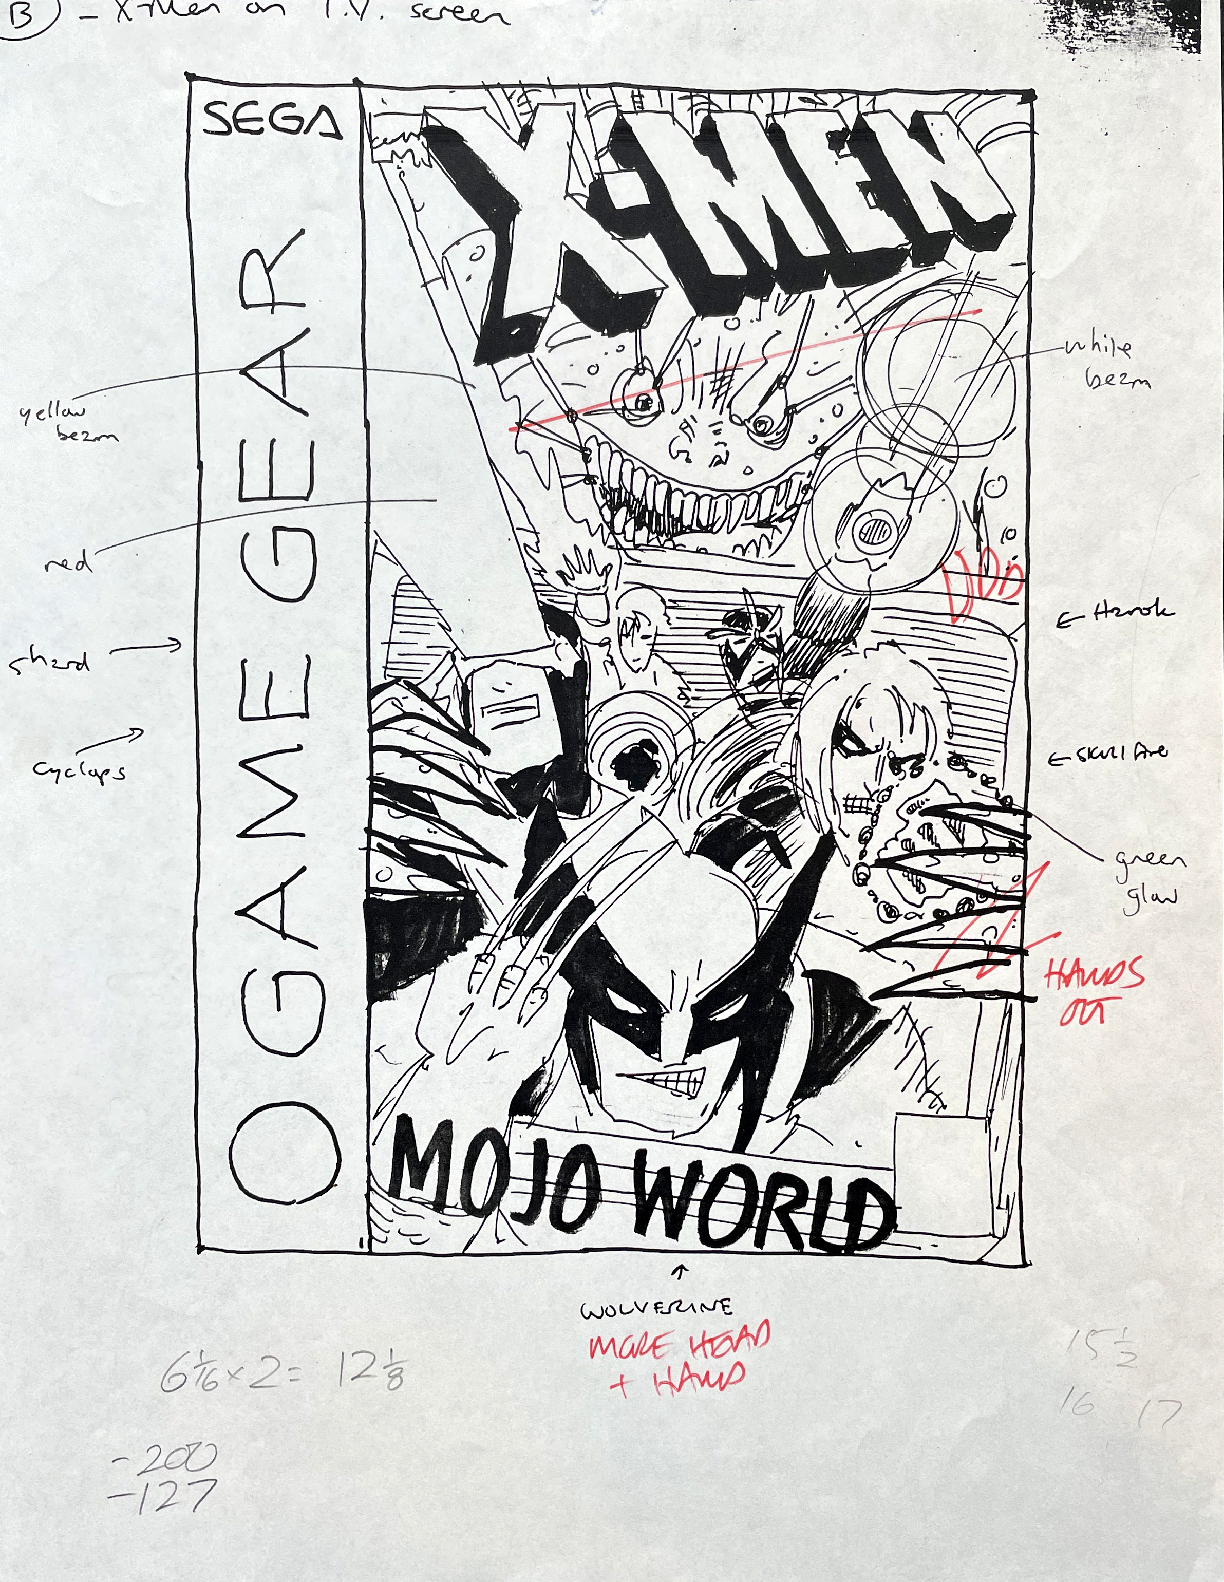 B - X-Men on T.V. screen
SEGA
GAME GEAR
X-MEN
white
beam
yellow
beam
red
← Havok
shard
cyclops
← SKULL fire
green
glow
HANDS
OUT
MOJO WORLD
WOLVERINE
MORE HEAD
+ HAND
6 1/16 x 2 = 12 1/8
15 1/2
16 17
-200
-127